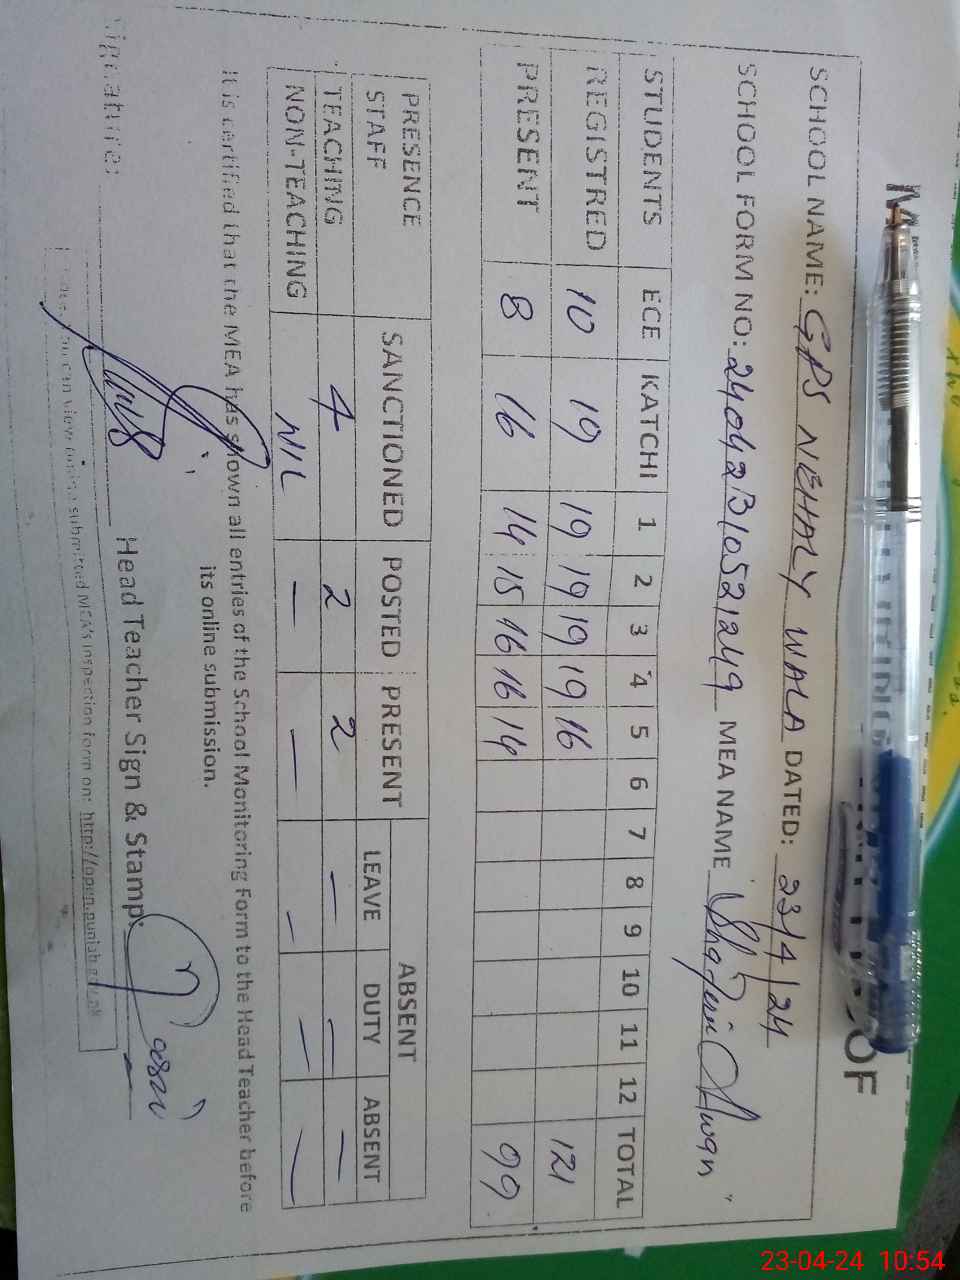 OF
SCHOOL NAME: GPS NEHALY WALA DATED: 23/4/24
SCHOOL FORM NO: 24042310521249 MEA NAME Shafeeii Awan
STUDENTS ECE KATCHI 1 2 3 4 5 6 7 8 9 10 11 12 TOTAL
REGISTRED 10 19 19 19 19 19 16 121
PRESENT 8 16 14 15 16 16 14 99
PRESENCE SANCTIONED POSTED PRESENT ABSENT
STAFF LEAVE DUTY ABSENT
TEACHING 4 2 2 — — —
NON-TEACHING NIL — — — — —
It is certified that the MEA has shown all entries of the School Monitoring Form to the Head Teacher before
its online submission.
Signature: Head Teacher Sign & Stamp:
you can view online submitted MEA's inspection form on: http://open.punjab.gov.pk
23-04-24 10:54